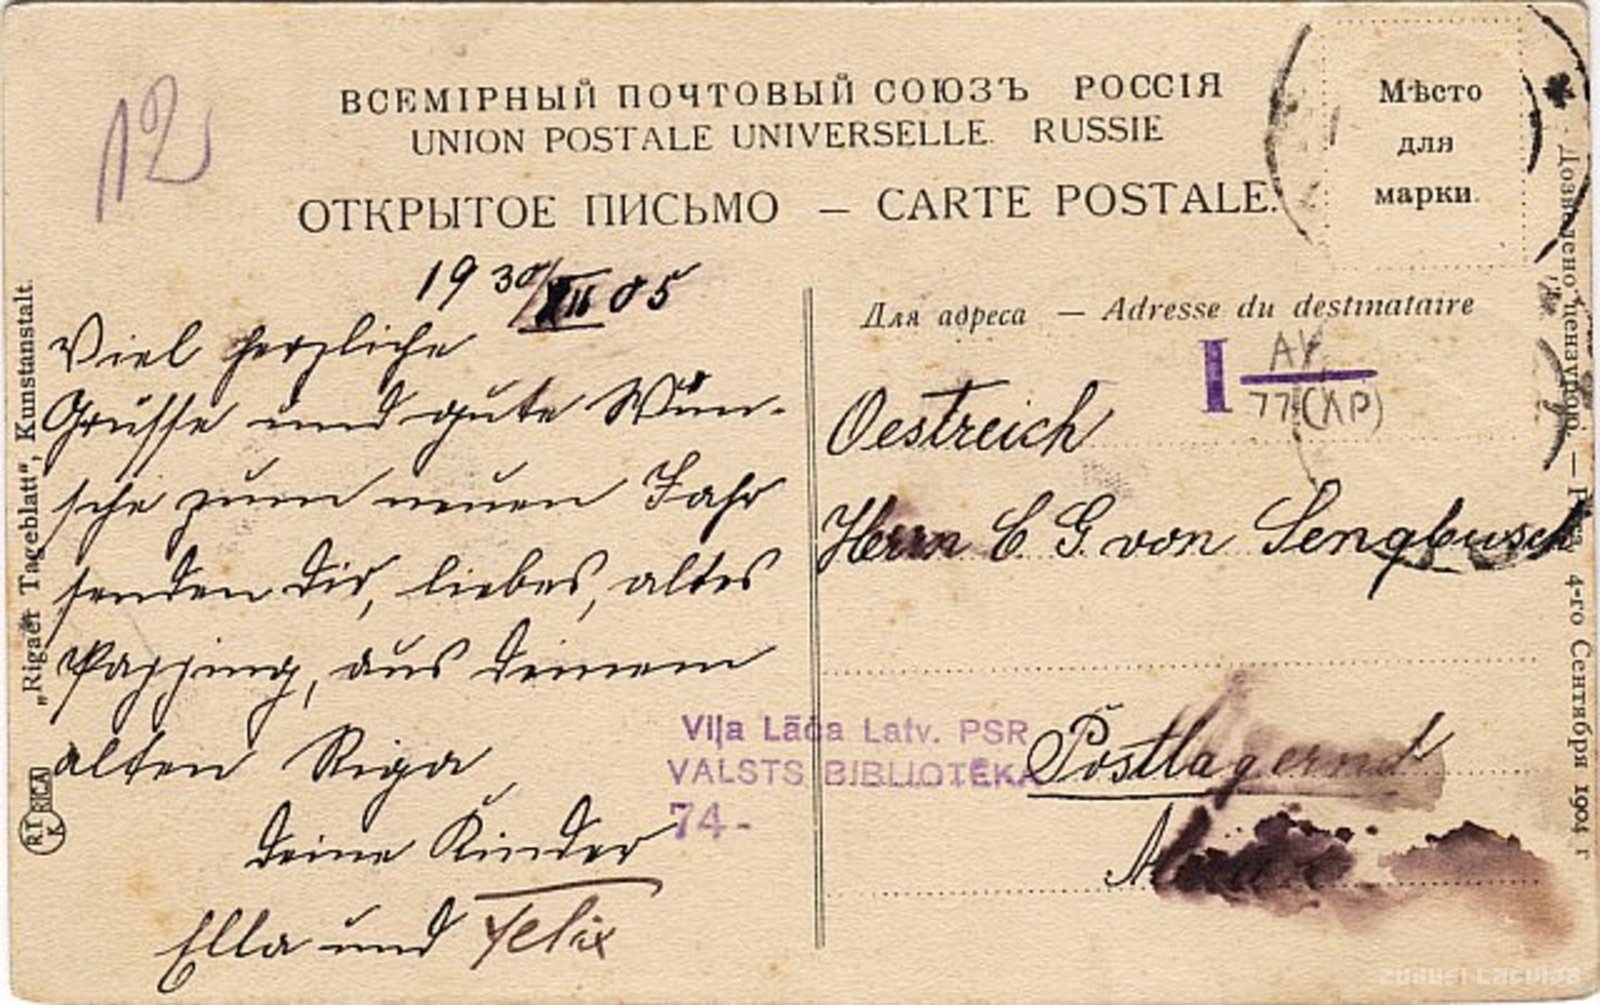 12
ВСЕМІРНЫЙ ПОЧТОВЫЙ СОЮЗЪ РОССІЯ
UNION POSTALE UNIVERSELLE. RUSSIE
ОТКРЫТОЕ ПИСЬМО — CARTE POSTALE.
Мѣсто
для
марки.
19 30/XII 05
Viel herzliche
Grüsse und gute Wün-
sche zum neuen Jahr
senden Dir, liebes, altes
aus Deinem
alten Riga
Deine Kinder
Ella und Felix
Для адреса — Adresse du destinataire
I AK
77 (KP)
Oestreich
Herrn C. G. von Sengbusch
Postlagernd
Viļa Lāča Latv. PSR
VALSTS BIBLIOTĒKA
74-
„Rigaer Tageblatt“, Kunstanstalt.
R.T.
K
RIGA
Дозволено цензурою. — Рига, 4-го Сентября 1904 г
zudusi Latvija